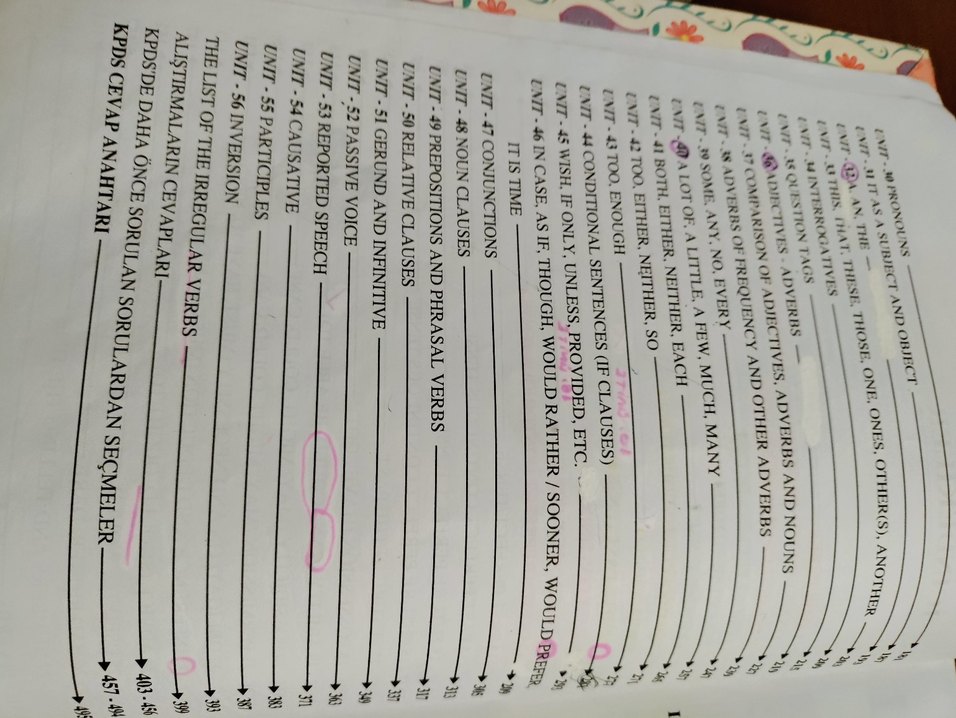 UNIT - 30 PRONOUNS
UNIT - 31 IT AS A SUBJECT AND OBJECT
UNIT - 32 A, AN, THE
UNIT - 33 THIS, THAT, THESE, THOSE, ONE, ONES, OTHER(S), ANOTHER
UNIT - 34 INTERROGATIVES
UNIT - 35 QUESTION TAGS
UNIT - 36 ADJECTIVES - ADVERBS
UNIT - 37 COMPARISON OF ADJECTIVES, ADVERBS AND NOUNS
UNIT - 38 ADVERBS OF FREQUENCY AND OTHER ADVERBS
UNIT - 39 SOME, ANY, NO, EVERY
UNIT - 40 A LOT OF, A LITTLE, A FEW, MUCH, MANY
UNIT - 41 BOTH, EITHER, NEITHER, EACH
UNIT - 42 TOO, EITHER, NEITHER, SO
UNIT - 43 TOO, ENOUGH
UNIT - 44 CONDITIONAL SENTENCES (IF CLAUSES)
UNIT - 45 WISH, IF ONLY, UNLESS, PROVIDED, ETC.
UNIT - 46 IN CASE, AS IF, THOUGH, WOULD RATHER / SOONER, WOULD PREFER,
IT IS TIME
UNIT - 47 CONJUNCTIONS
UNIT - 48 NOUN CLAUSES 313
UNIT - 49 PREPOSITIONS AND PHRASAL VERBS 317
UNIT - 50 RELATIVE CLAUSES 337
UNIT - 51 GERUND AND INFINITIVE 349
UNIT - 52 PASSIVE VOICE 363
UNIT - 53 REPORTED SPEECH 371
UNIT - 54 CAUSATIVE 383
UNIT - 55 PARTICIPLES 387
UNIT - 56 INVERSION 393
THE LIST OF THE IRREGULAR VERBS 399
ALIŞTIRMALARIN CEVAPLARI 403 - 456
KPDS'DE DAHA ÖNCE SORULAN SORULARDAN SEÇMELER 457 - 494
KPDS CEVAP ANAHTARI 495